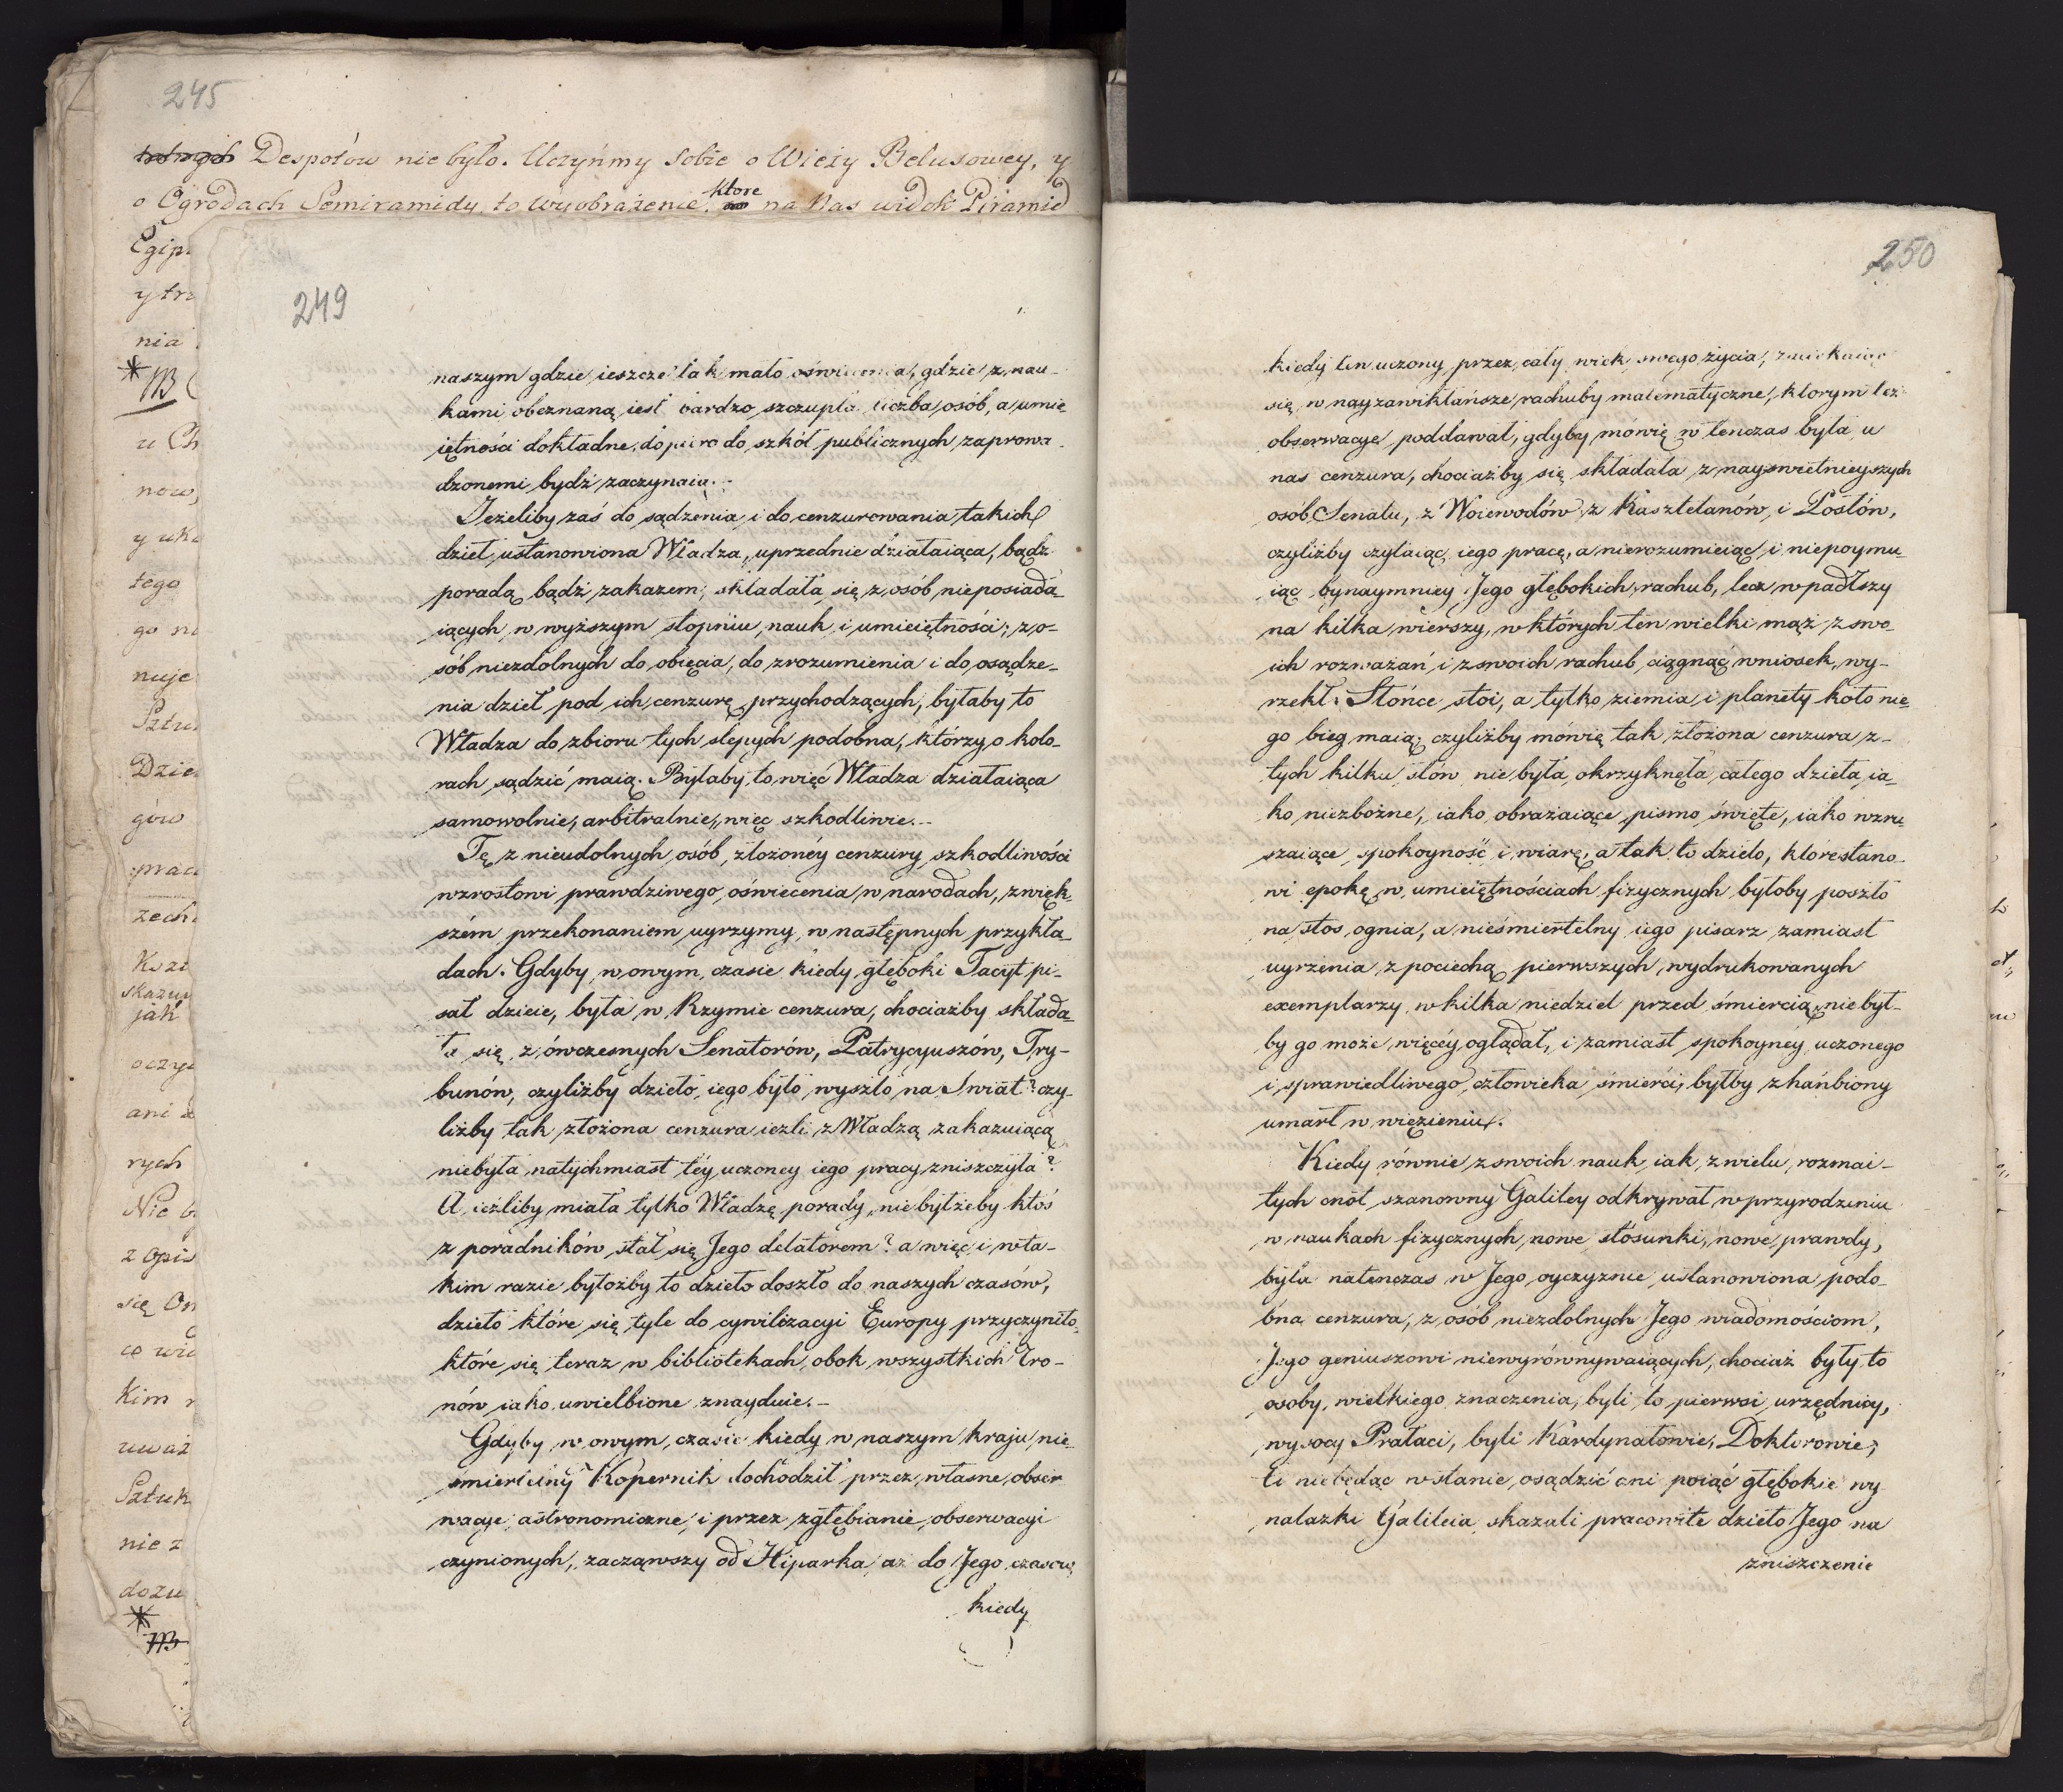 245
Despotów nie było. Uczyńmy sobie o Wieży Belusowey, y
o Ogrodach Semiramidy, to wyobrażenie, ktore na Nas widok Piramid
Egip
y trz
nia
* NB
u Ch
now
y uk
tego
go n
nuje
Sztu
Dzie
gów
prac
zech
Ksz
skazu
jak
oczy
ani
rych
Nic
z opis
się On
co wi
kim
uwaz
Sztuk
nie z
dozu
*
NB
249
naszym gdzie ieszcze tak mało oświecenia, gdzie z nau-
kami obeznaną iest bardzo szczupła liczba osób, a umie
iętności dokładne, dopiero do szkół publicznych zaprowa-
dzonemi bydź zaczynaią.
Jeżeliby zaś do sądzenia i do cenzurowania takich
dzieł ustanowiona Władza, uprzednie działaiąca, bądź
poradą bądź zakazem, składała się z osób nieposiada-
iących w wyższym stopniu nauk i umieiętności; z o-
sób niezdolnych do obięcia, do zrozumienia i do osądze-
nia dzieł pod ich cenzurę przychodzących, byłaby to
Władza do zbioru tych slepych podobna, którzy o kolo-
rach sądzić maią. Byłaby to więc Władza działaiąca
samowolnie, arbitralnie, więc szkodliwie.-
Tę z nieudolnych osób złożonéy cenzury szkodliwości
wzrostowi prawdziwego oświecenia w narodach, z więk-
szém przekonaniem uyrzymy w następnych przykła-
dach. Gdyby w owym czasie kiedy głęboki Tacyt pi-
sał dzieie, była w Rzymie cenzura, chociażby składa-
ła się z ówczesnych Senatorów, Patrycyuszów, Try-
bunów, czyliżby dzieło iego było wyszło na Swiat? czy-
liżby tak złożona cenzura ieżli z Władzą zakazuiącą
niebyła natychmiast téy uczoney iego pracy zniszczyła?
A ieżliby miała tylko Władzę porady, nie byłżeby ktoś
z poradników stał się Jego delatorem? a więc i w ta-
kim razie byłożby to dzieło doszło do naszych czasów,
dzieło które się tyle do cywilizacyi Europy przyczyniło,
które się teraz w bibliotekach obok wszystkich Tro-
nów iako uwielbione znayduie.-
Gdyby w owym czasie kiedy w naszym kraju nie-
śmiertelny Kopernik dochodził przez własne obser
wacye astronomiczne, i przez zgłębianie obserwacyi
czynionych, zacząwszy od Hiparka aż do Jego czasów,
kiedy
250
kiedy ten uczony przez cały wiek swego życia, zaciekaiąc
się w nayzawikłańsze rachuby matematyczne, ktorym też
obserwacye poddawał, gdyby mówię w tenczas była u
nas cenzura, chociażby się składała z nayswietnieyszych
osób Senatu, z Woiewodów z Kasztelanów, i Posłów,
czyliżby czytaiąc iego pracę, a nierozumieiąc i niepoymu
iąc bynaymniéy Jego głębokich rachub, lecz wpadłszy
na kilka wierszy, w których ten wielki mąż z swo-
ich rozważań i z swoich rachub ciągnąć wniosek, wy-
rzekł: Słońce stoi, a tylko ziemia i planety koło nie-
go bieg maią; czyliżby mówię tak złożona cenzura z-
tych kilku słów nie była okrzyknęła całego dzieła ia-
ko niezbożne, iako obrażaiące pismo święte, iako wzru
szaiące spokoyność i wiarę, a tak to dzieło, które stano-
wi epokę w umieiętnościach fizycznych byłoby poszło
na stos ognia, a nieśmiertelny iego pisarz zamiast
uyrzenia z pociechą pierwszych wydrukowanych
exemplarzy w kilka niedziel przed śmiercią, nie był-
by go może więcéy oglądał, i zamiast spokoynéy uczonego
i sprawiedliwego człowieka śmierci, byłby zhańbiony
umarł w więzieniu.
Kiedy równie z swoich nauk, iak z wielu rozmai-
tych cnót szanowny Galiley odkrywał w przyrodzeniu
w naukach fizycznych nowe stosunki, nowe prawdy,
była natenczas w Jego oyczyznie ustanowiona podo-
bna cenzura, z osób niezdolnych Jego wiadomościom,
Jego geniuszowi niewyrównywaiących, chociaż były to
osoby wielkiego znaczenia, byli to pierwsi urzędnicy,
wysocy Prałaci, byli Kardynałowie, Doktorowie,
Ci niebędąc w stanie osądzić ani poiąć głębokie wy
nalazki Galileia, skazali pracowite dzieło Jego na
zniszczenie